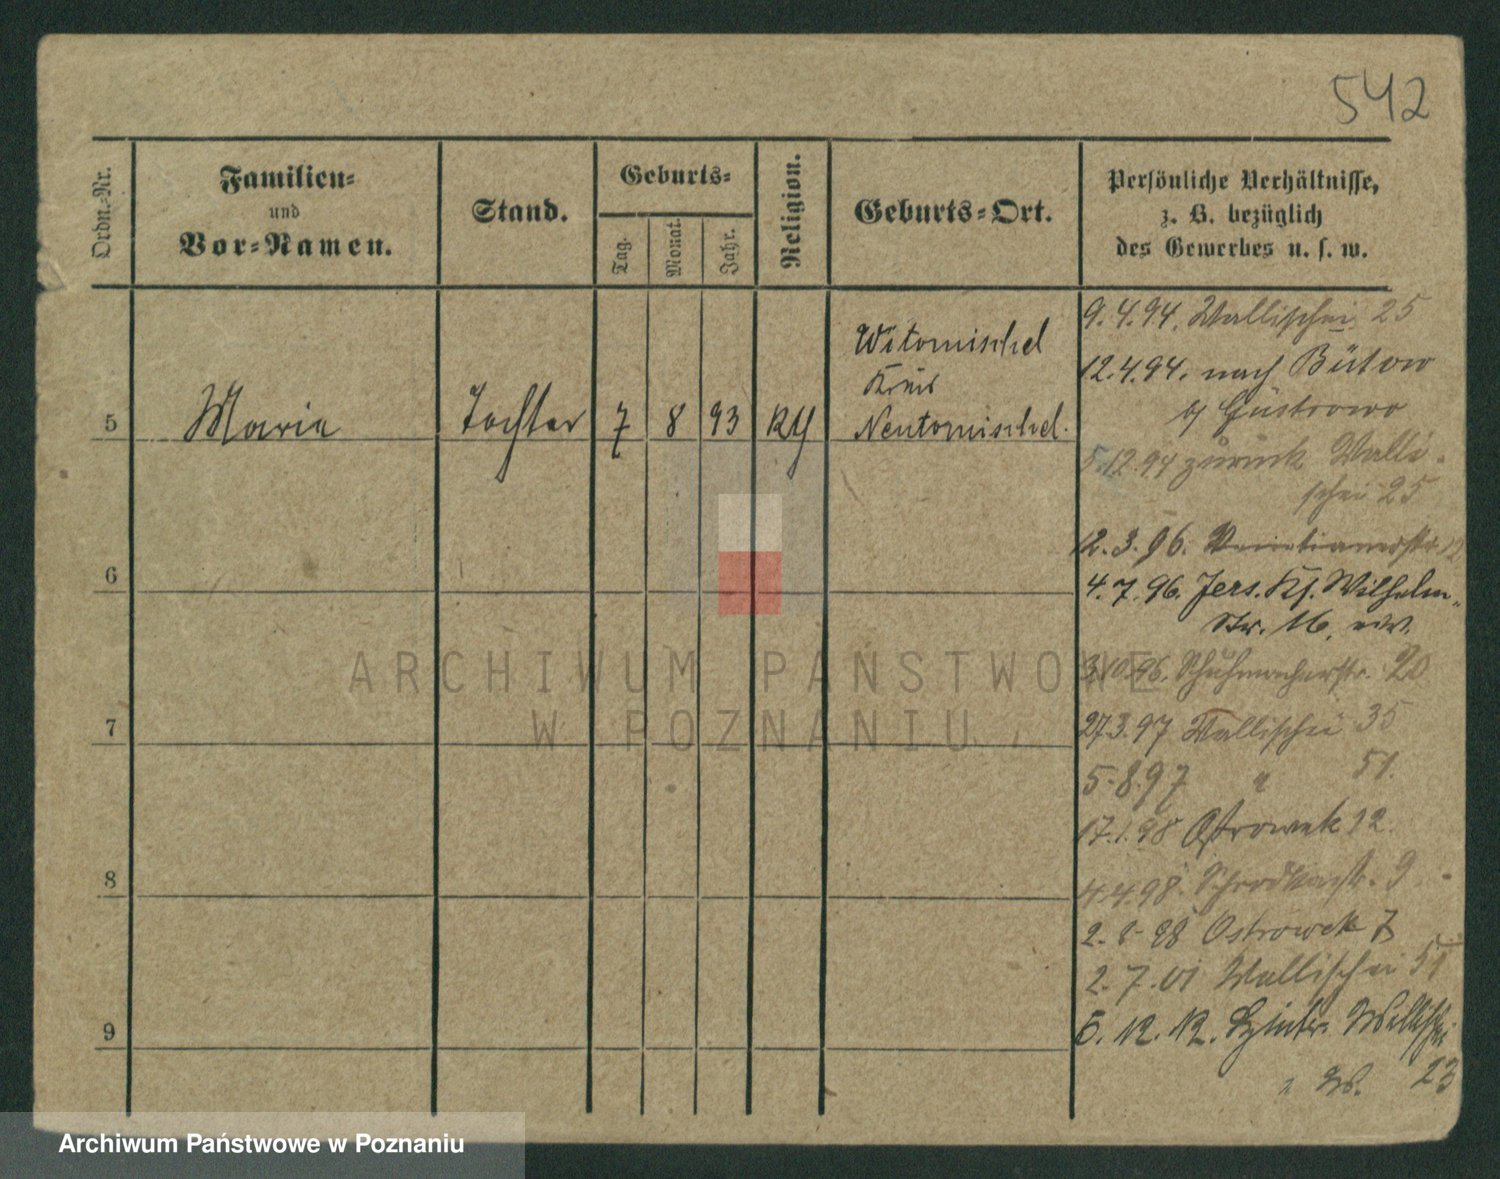 542
Ordn.-Nr.
Familien-
und
Vor-Namen.
Stand.
Geburts-
Tag.
Monat.
Jahr.
Religion.
Geburts-Ort.
Persönliche Verhältnisse,
z. B. bezüglich
des Gewerbes u. s. w.
5
Maria
Tochter
7
8
93
Kth
Witomischel
Kreis
Neutomischel.
9.4.94. Wallischei 25
12.4.94. nach Bütow
b/ Güstrow
5.12.94 zurück Walli-
schei 25
12.3.96. Venetianerstr. 12
4.7.96. Jers. Ks. Wilhelm-
Str. 16.
3.10.96. Schuhmacherstr. 20
27.3.97 Wallischei 35
5.8.97 " 51.
17.1.98 Ostrowek 12.
4.4.98. Schrodkastr. 9
2.8.98 Ostrowek 7
2.7.01 Wallischei 51
5.12.12. Wallischei
23
6
7
8
9
ARCHIWUM PAŃSTWOWE
W POZNANIU
Archiwum Państwowe w Poznaniu